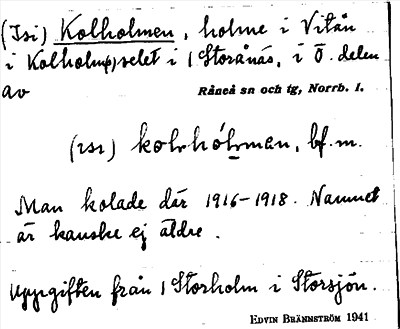 (Isi) Kolholmen, holme i Vitån
i Kolholm(s)selet i 1 Storånäs, i Ö. delen
av Råneå sn och tg, Norrb. l.
(ısı) kolhólman, bf. m.
Man kolade där 1916-1918. Namnet
är kanske ej äldre.
Uppgiften från 1 Storholm i Storsjön.
EDVIN BRÄNNSTRÖM 1941